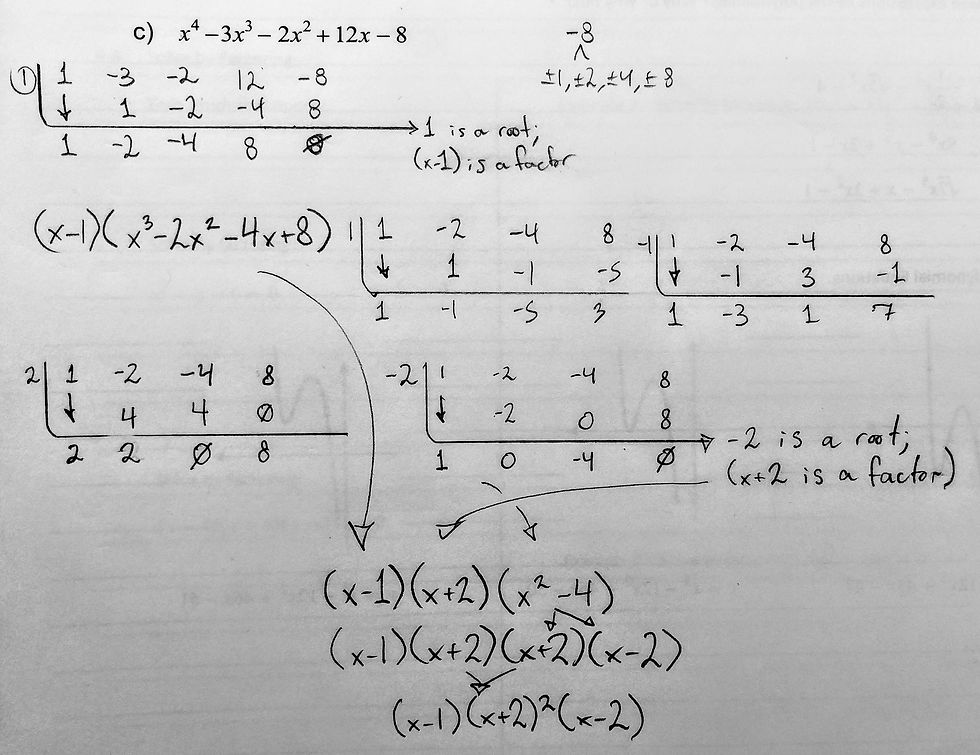 c) x⁴ – 3x³ – 2x² + 12x – 8
-8
±1, ±2, ±4, ± 8
1 1 -3 -2 12 -8
↓ 1 -2 -4 8
1 -2 -4 8 0
→ 1 is a root;
(x-1) is a factor
(x-1)(x³-2x²-4x+8)
1 1 -2 -4 8
↓ 1 -1 -5
1 -1 -5 3
-1 1 -2 -4 8
↓ -1 3 -1
1 -3 1 7
2 1 -2 -4 8
↓ 4 4 0
2 2 0 8
-2 1 -2 -4 8
↓ -2 0 8
1 0 -4 0
→ -2 is a root;
(x+2 is a factor)
(x-1)(x+2)(x²-4)
(x-1)(x+2)(x+2)(x-2)
(x-1)(x+2)²(x-2)